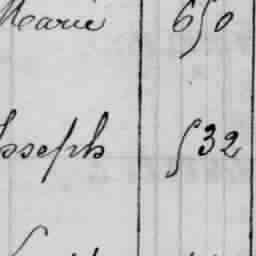 Marie 650
Joseph 532